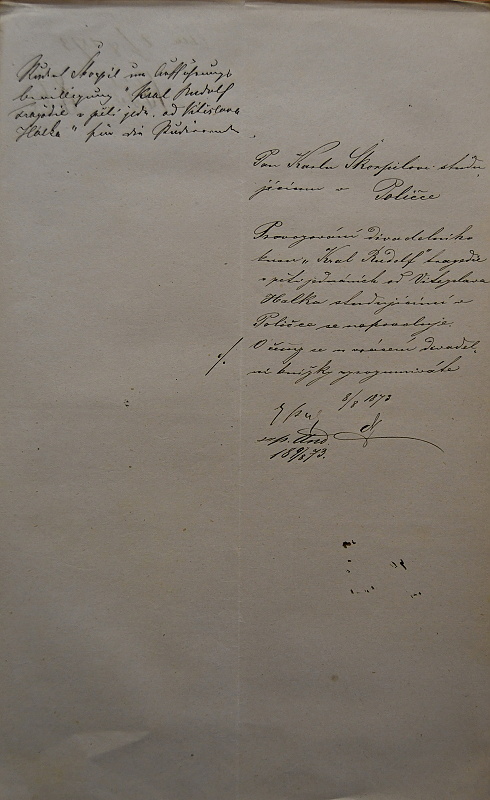 Karl Škorpil um Aufführungs
bewilligung "Kral Rudolf
tragedie v pěti jedn. od Vítězslava
Hálka" für die Studierende
Panu Karlu Škorpilovi studu
jícímu v Poličce
Provozování divadelního
kusu "Kral Rudolf" tragedie
v pěti jednáních od Vítězslava
Hálka studujícími v
Poličce se nepovoluje.
O čemž se u vrácení divadel-
ní knížky vyrozumíváte
8/8 1873
exp.
18 9/8 73.